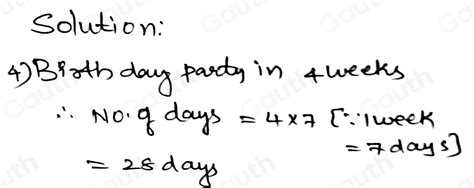 Solution:
4) Birth day party in 4 weeks
∴ No. of days = 4 x 7 [∵ 1 week
= 7 days]
= 28 days